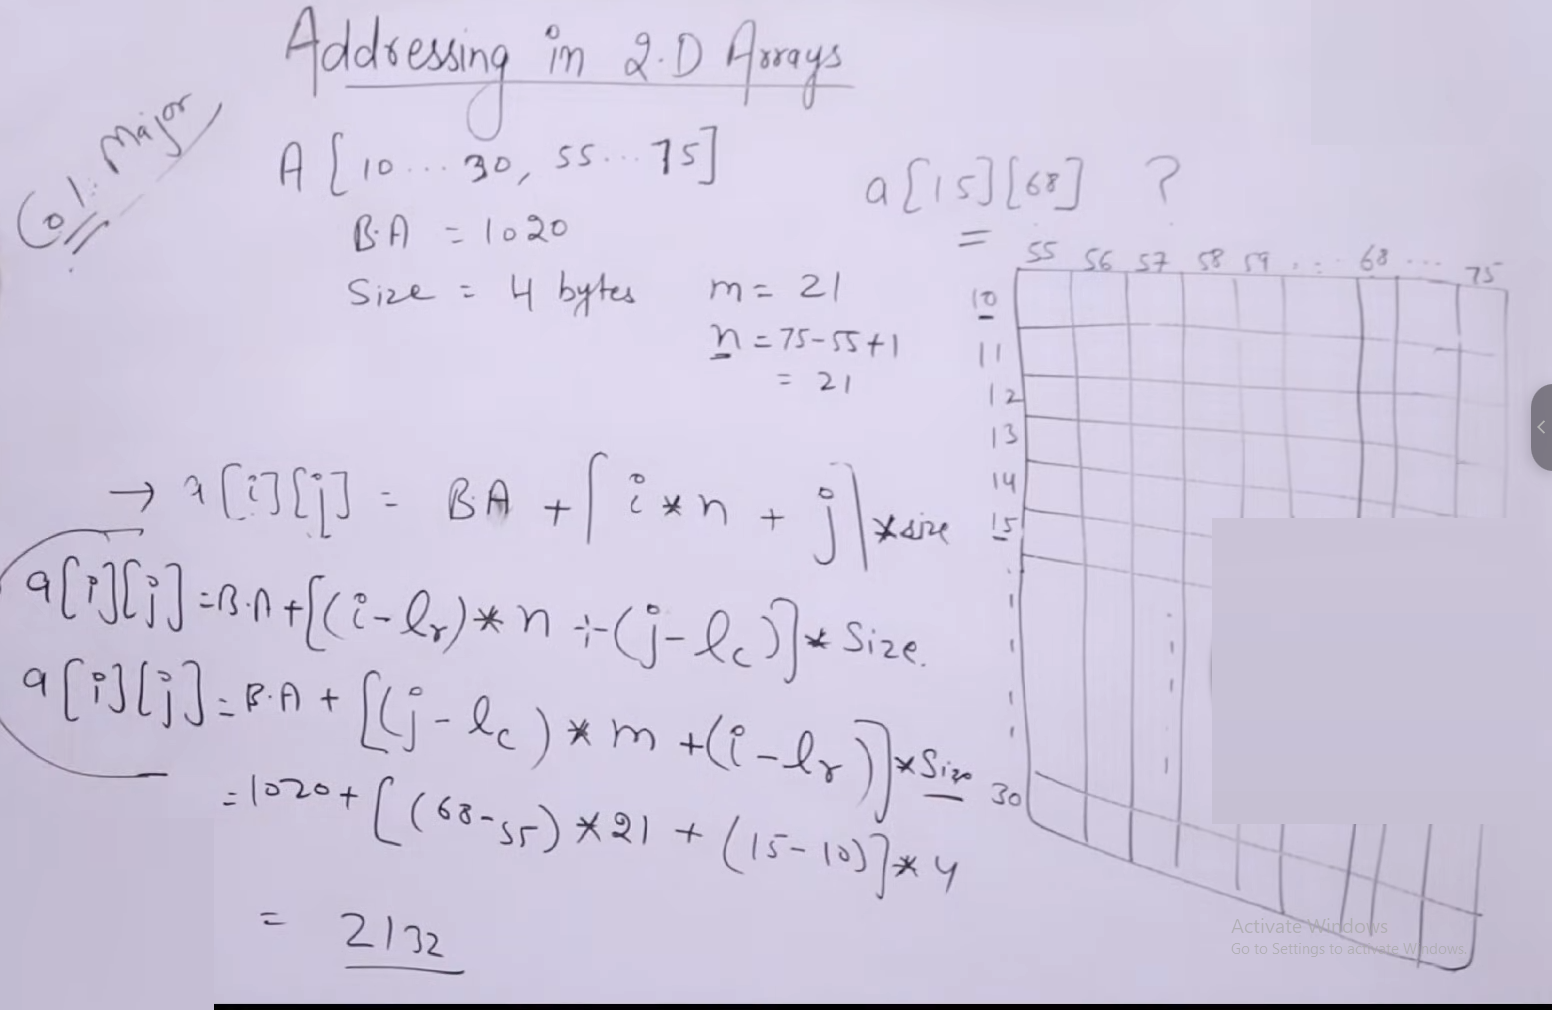 Addressing in 2.D Arrays
Col. Major
A [10 ... 30, 55 ... 75]
a[15][68] ?
B.A = 1020
=
Size = 4 bytes
m = 21
n = 75-55+1
= 21
55 56 57 58 59 ... 68 ... 75
10
11
12
13
14
15
30
→ a[i][j] = B.A + [i * n + j] * size
a[i][j] = B.A + [(i - lr) * n + (j - lc)] * Size.
a[i][j] = B.A + [(j - lc) * m + (i - lr)] * Size
= 1020 + [(68-55) * 21 + (15-10)] * 4
= 2132
Activate Windows
Go to Settings to activate Windows.